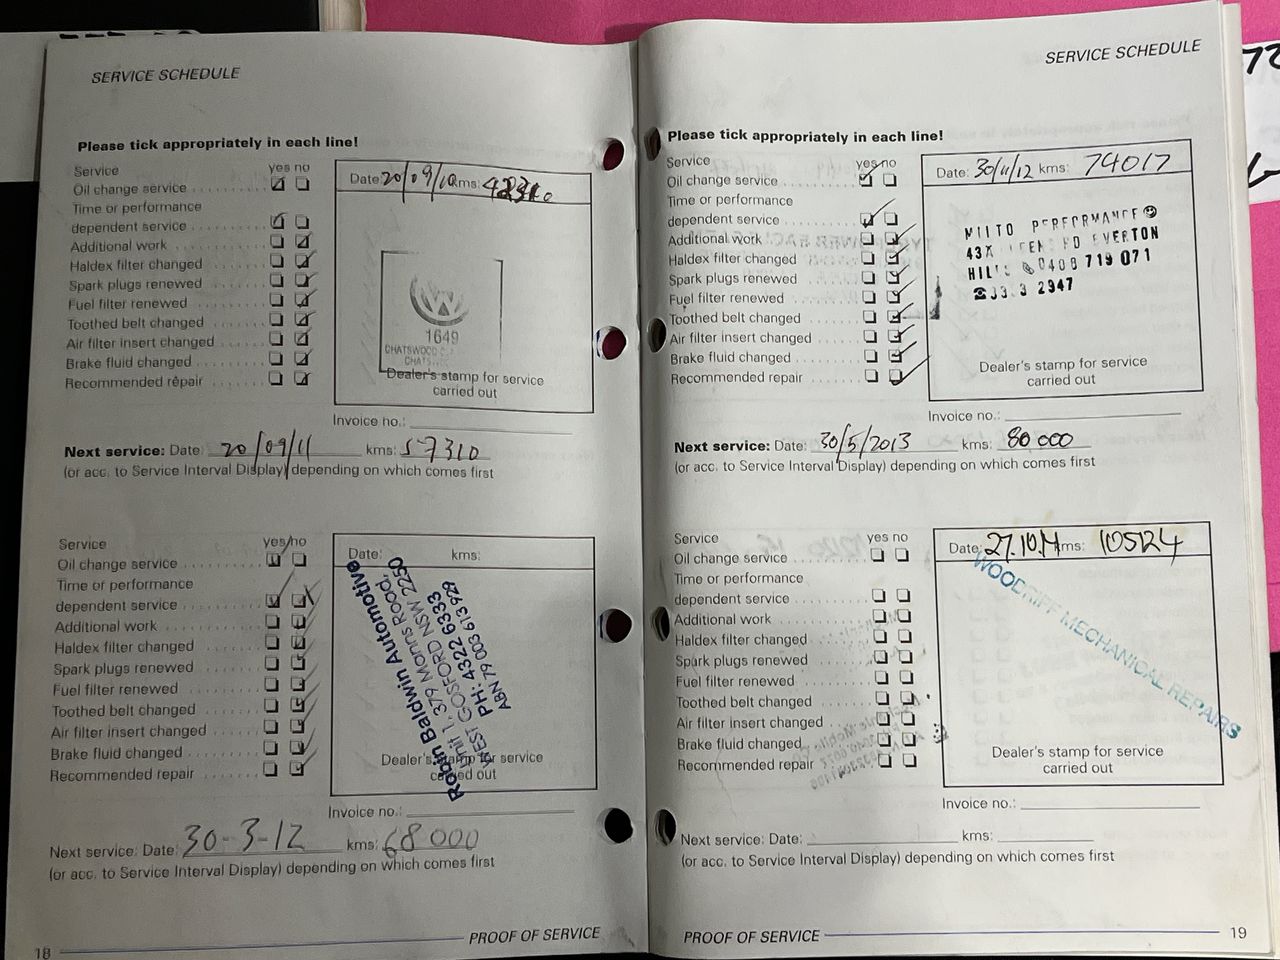 SERVICE SCHEDULE
Please tick appropriately in each line!
Service yes no
Oil change service
Time or performance
dependent service
Additional work
Haldex filter changed
Spark plugs renewed
Fuel filter renewed
Toothed belt changed
Air filter insert changed
Brake fluid changed
Recommended repair
Date: 20/09/10 kms:
1649
CHATSWOOD
Dealer's stamp for service
carried out
Invoice no.:
Next service: Date: 20/09/11 kms: 57310
(or acc. to Service Interval Display) depending on which comes first
Service yes no
Oil change service
Time or performance
dependent service
Additional work
Haldex filter changed
Spark plugs renewed
Fuel filter renewed
Toothed belt changed
Air filter insert changed
Brake fluid changed
Recommended repair
Date: kms:
Robin Baldwin Automotive
Unit 1, 379 Manns Road,
WEST GOSFORD NSW 2250
PH: 4322 6333
ABN 79 003 613 929
Dealer's stamp for service
carried out
Invoice no.:
Next service: Date: 30-3-12 kms: 68000
(or acc. to Service Interval Display) depending on which comes first
18 PROOF OF SERVICE
SERVICE SCHEDULE
Please tick appropriately in each line!
Service yes no
Oil change service
Time or performance
dependent service
Additional work
Haldex filter changed
Spark plugs renewed
Fuel filter renewed
Toothed belt changed
Air filter insert changed
Brake fluid changed
Recommended repair
Date: 30/11/12 kms: 74017
PERFORMANCE
43X EVERTON
HILLS 0408 719 071
2947
Dealer's stamp for service
carried out
Invoice no.:
Next service: Date: 30/5/2013 kms: 80 000
(or acc. to Service Interval Display) depending on which comes first
Service yes no
Oil change service
Time or performance
dependent service
Additional work
Haldex filter changed
Spark plugs renewed
Fuel filter renewed
Toothed belt changed
Air filter insert changed
Brake fluid changed
Recommended repair
Date: 27.10.14 kms: 105124
WOODRIFF MECHANICAL REPAIRS
Dealer's stamp for service
carried out
Invoice no.:
Next service: Date: kms:
(or acc. to Service Interval Display) depending on which comes first
PROOF OF SERVICE 19